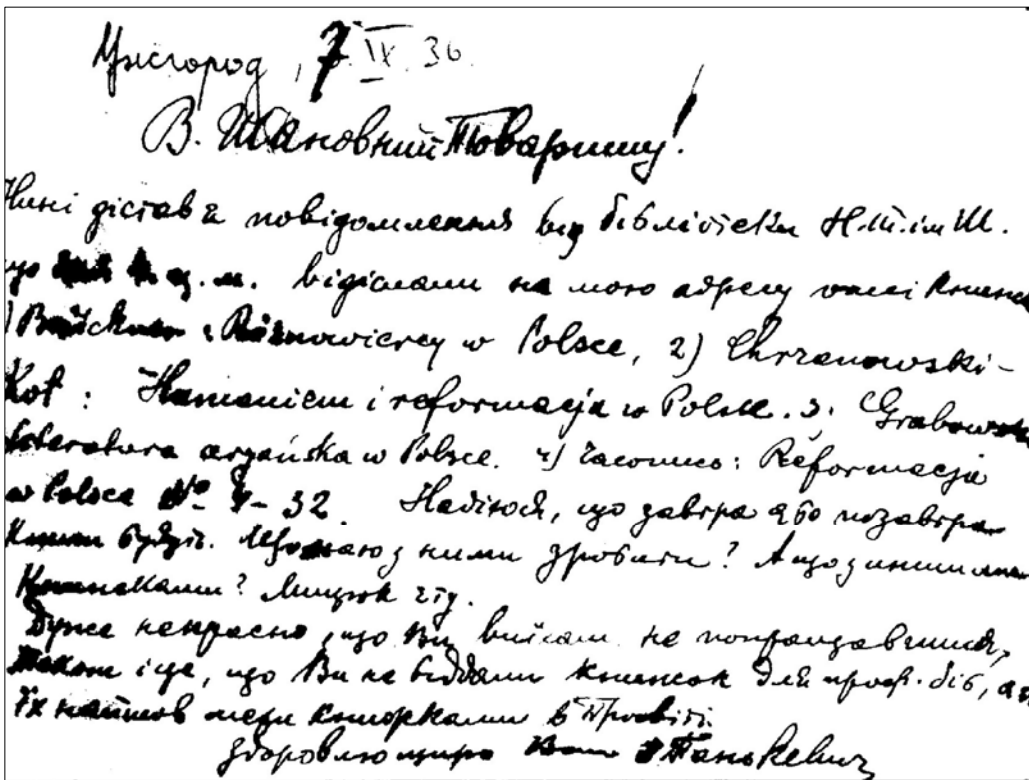 Ужгород, 7.IX.36.
В. Шановний Товаришу!
Нині дістав я повідомлення від бібліотеки Н.Т.ім Ш.
що ц.м. відіслали на мою адресу такі книжки
Różnowiercy w Polsce, 2) Chrzanowski-
Kot: Humanizm i reformacja w Polsce. 3. Grabowski
literatura aryańska w Polsce. 4) Reformacja
w Polsce № 1-32. Надіюся, що завтра або позавтра
книжки будуть. Що маю з ними зробити? А що з иншими
книжками?
Дуже некрасно, що Ви виїхали не попращавшися,
також і це, що Ви не віддали книжок для проф. біб,
їх найшов меж книжками в Просвіті.
Здоровлю щиро Панькевич